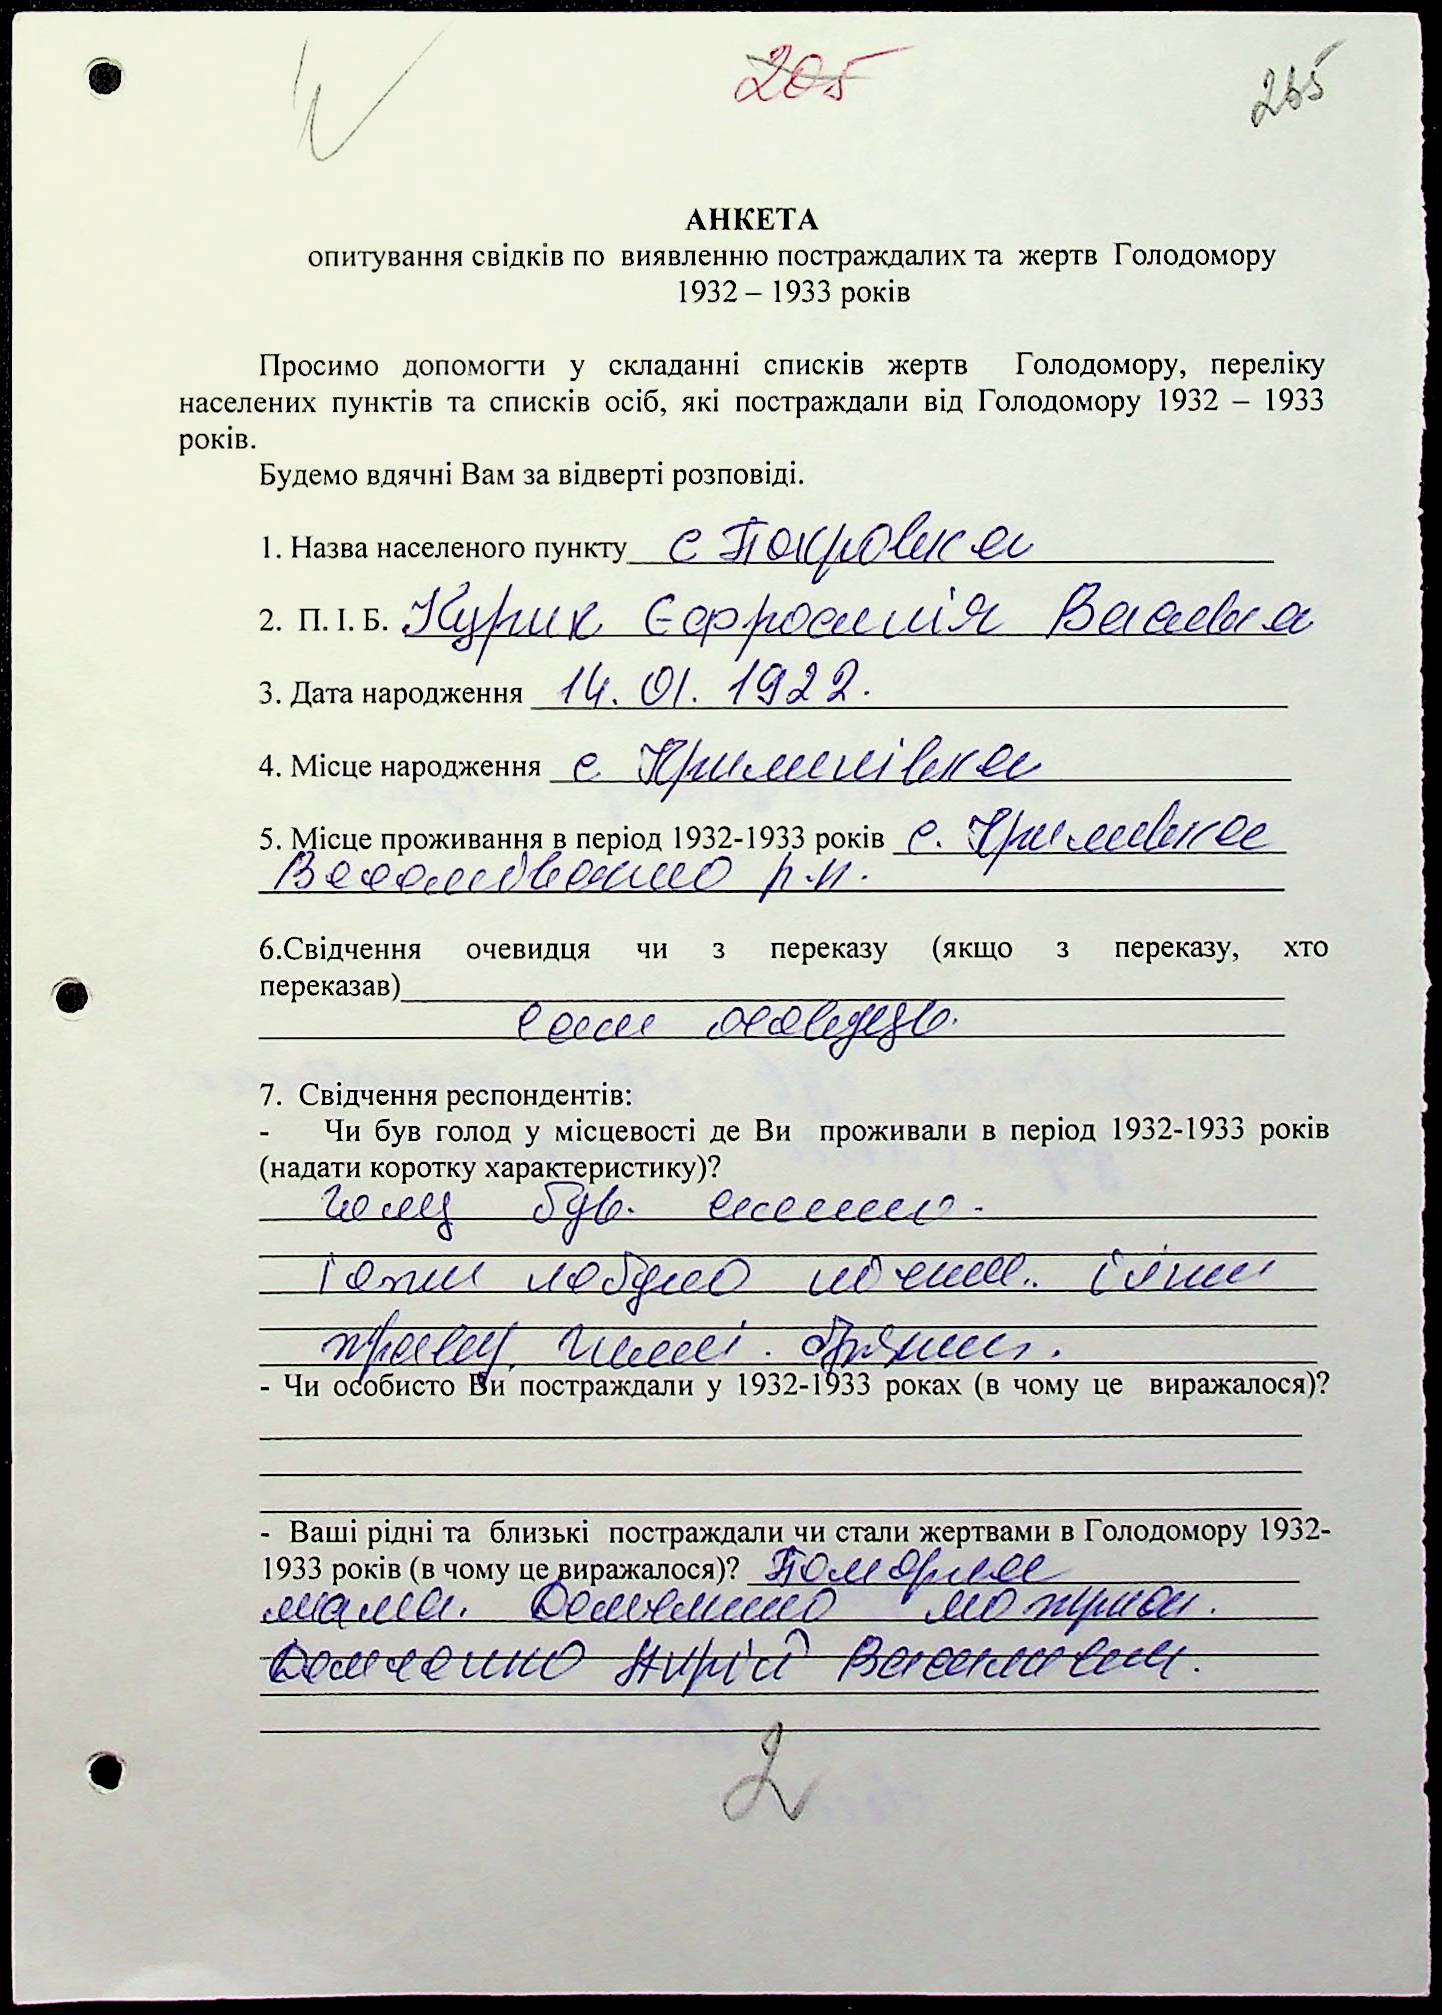 205
265
АНКЕТА
опитування свідків по виявленню постраждалих та жертв Голодомору
1932 – 1933 років
Просимо допомогти у складанні списків жертв Голодомору, переліку
населених пунктів та списків осіб, які постраждали від Голодомору 1932 – 1933
років.
Будемо вдячні Вам за відверті розповіді.
1. Назва населеного пункту с Покровка
2. П. І. Б. Курик Єфросинія
3. Дата народження 14.01.1922.
4. Місце народження с
5. Місце проживання в період 1932-1933 років с.
р.н.
6.Свідчення очевидця чи з переказу (якщо з переказу, хто
переказав)
сам
7. Свідчення респондентів:
- Чи був голод у місцевості де Ви проживали в період 1932-1933 років
(надати коротку характеристику)?
голод був.
траву.
- Чи особисто Ви постраждали у 1932-1933 роках (в чому це виражалося)?
- Ваші рідні та близькі постраждали чи стали жертвами в Голодомору 1932-
1933 років (в чому це виражалося)? Померла
мама.
2